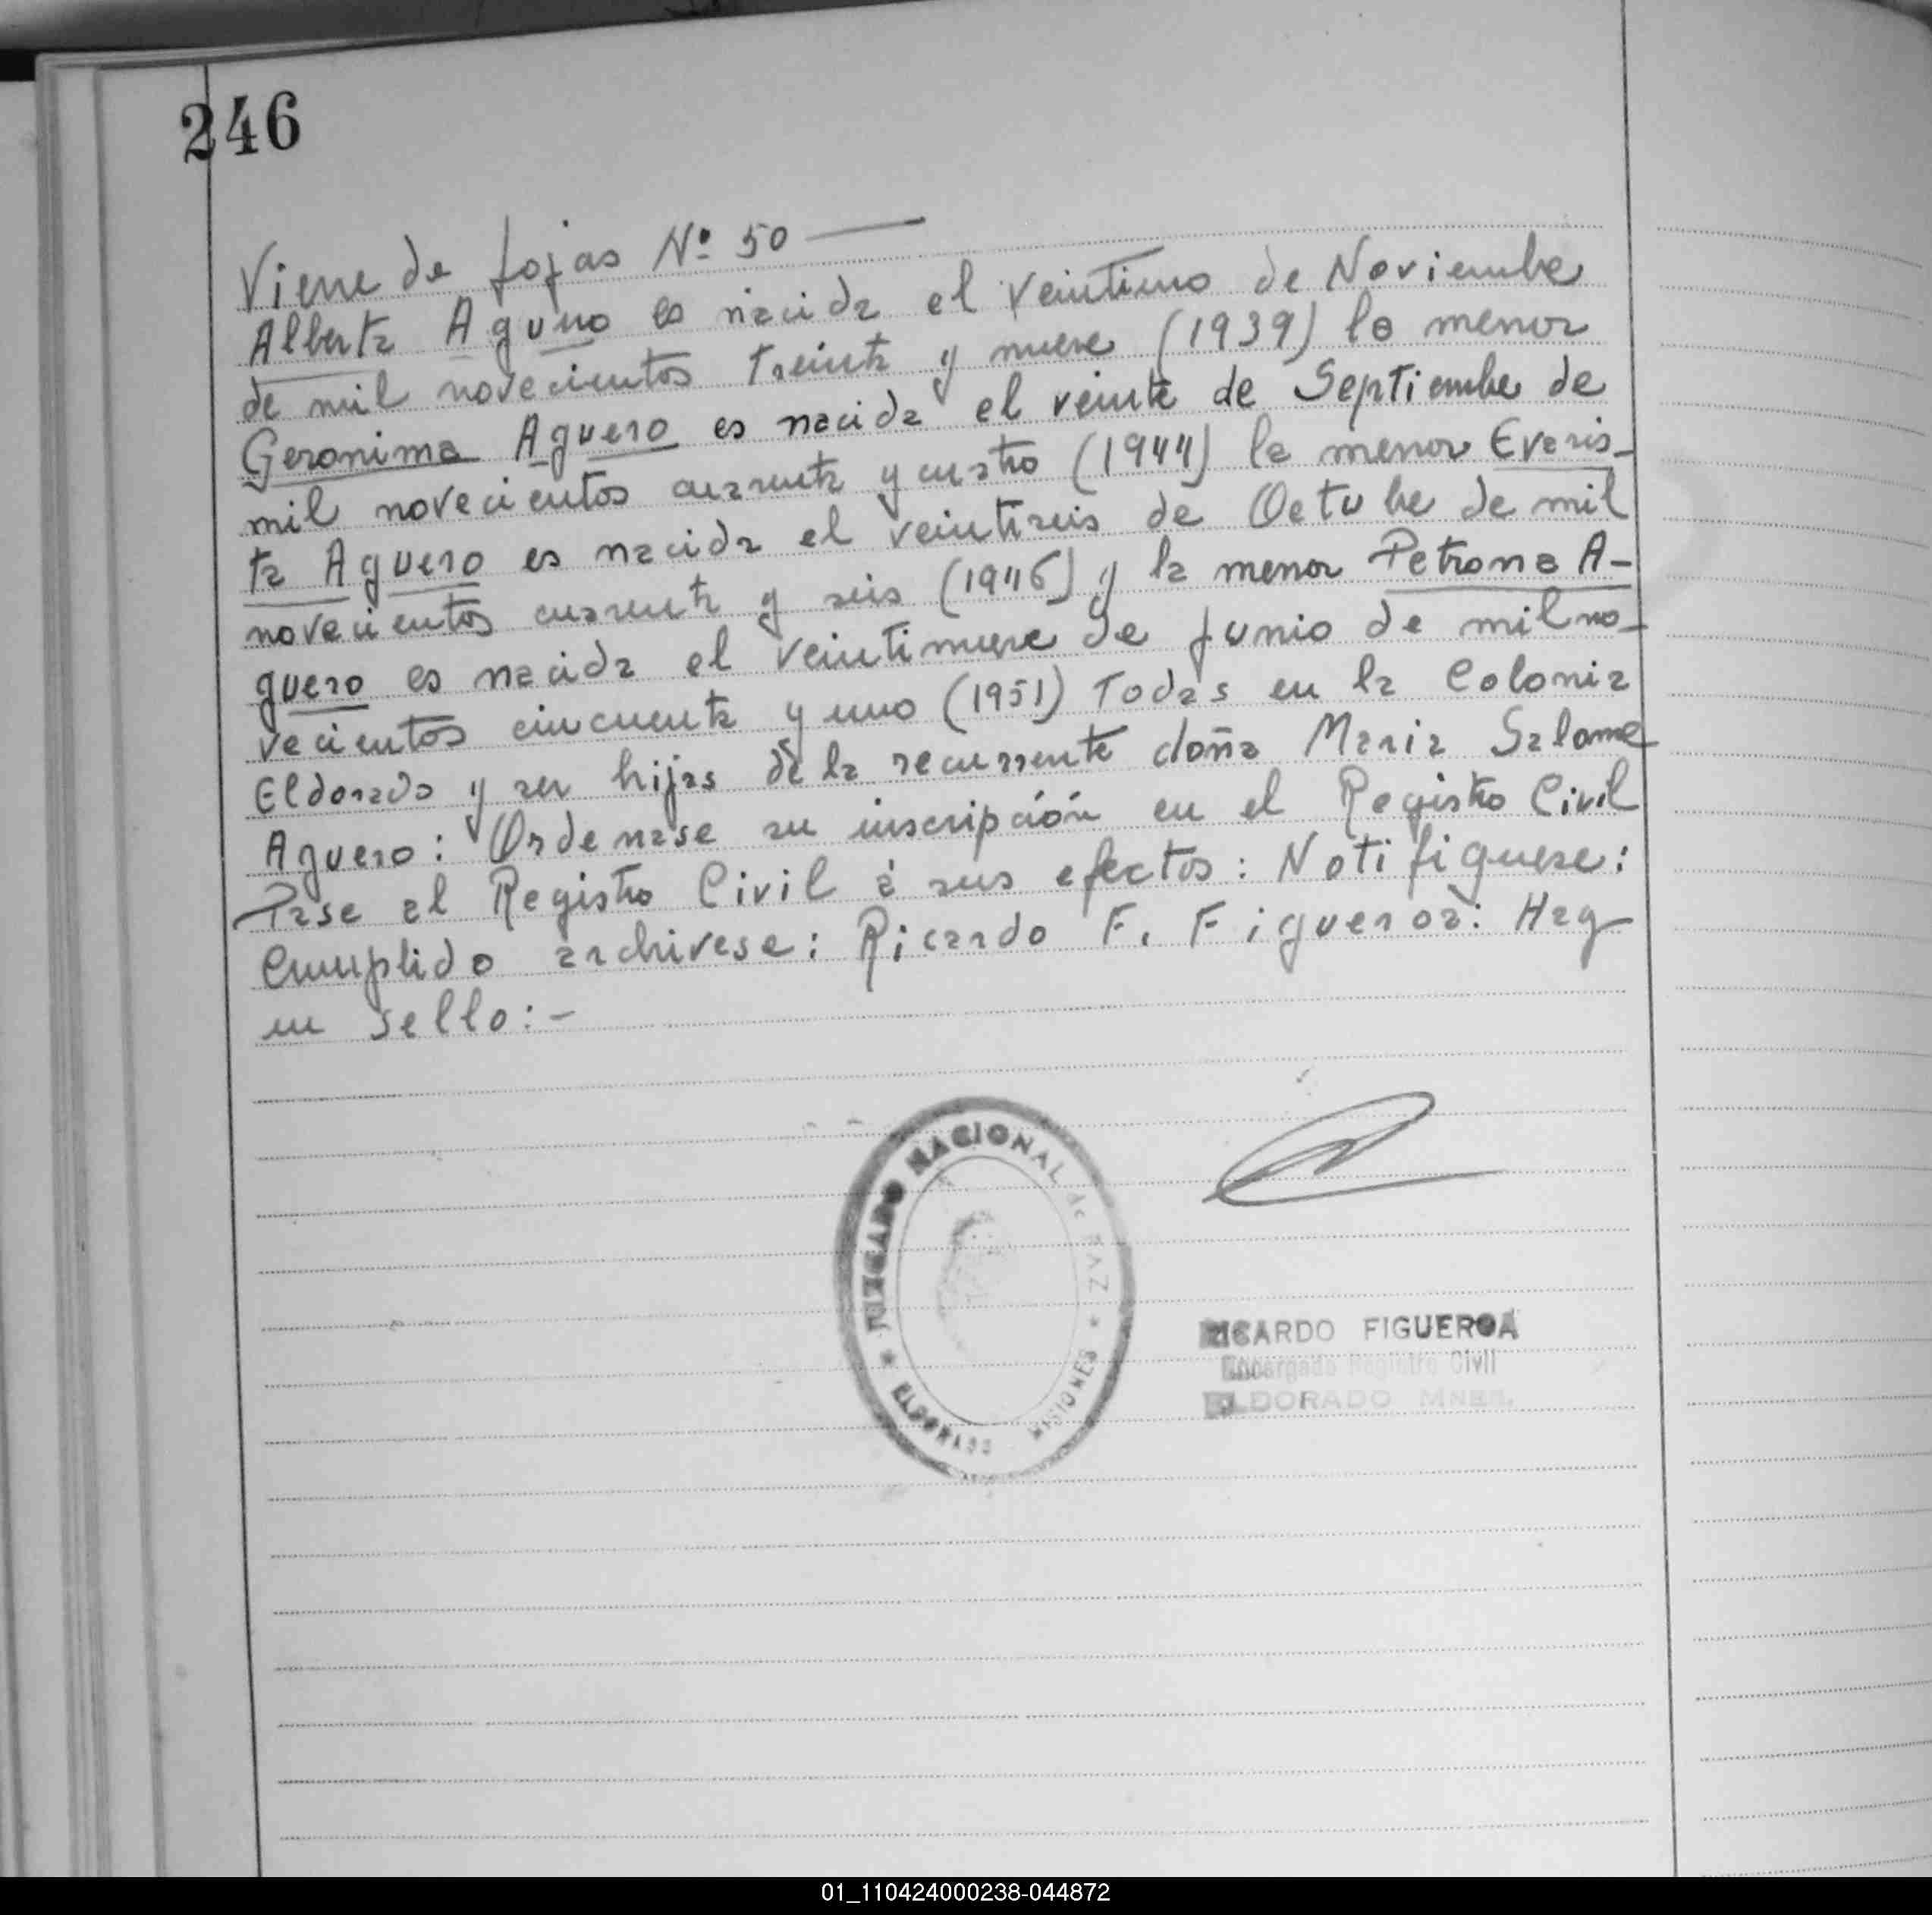 246
Viene de fojas Nº 50 —
Alberta Aguero es nacida el veintiuno de Noviembre
de mil novecientos treinta y nueve (1939) la menor
Geronima Aguero es nacida el veinte de Septiembre de
mil novecientos cuarenta y cuatro (1944) la menor Evaris-
ta Aguero es nacida el veintiseis de Octubre de mil
novecientos cuarenta y seis (1946) y la menor Petrona A-
guero es nacida el veintinueve de junio de mil no-
vecientos cincuenta y uno (1951) Todas en la Colonia
Eldorado y ser hijas de la recurrente doña Maria Salome
Aguero: Ordenase su inscripción en el Registro Civil
Pase al Registro Civil á sus efectos: Notifiquese:
Cumplido archivese: Ricardo F. Figueroa: Hay
un sello:-
JUZGADO NACIONAL de PAZ
* ELDORADO MISIONES *
RICARDO FIGUEROA
Encargado Registro Civil
ELDORADO MNES.
01_110424000238-044872